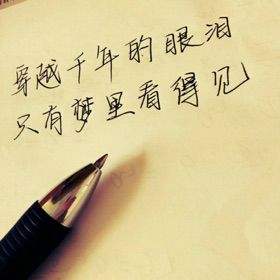 穿越千年的眼泪
只有梦里看得见